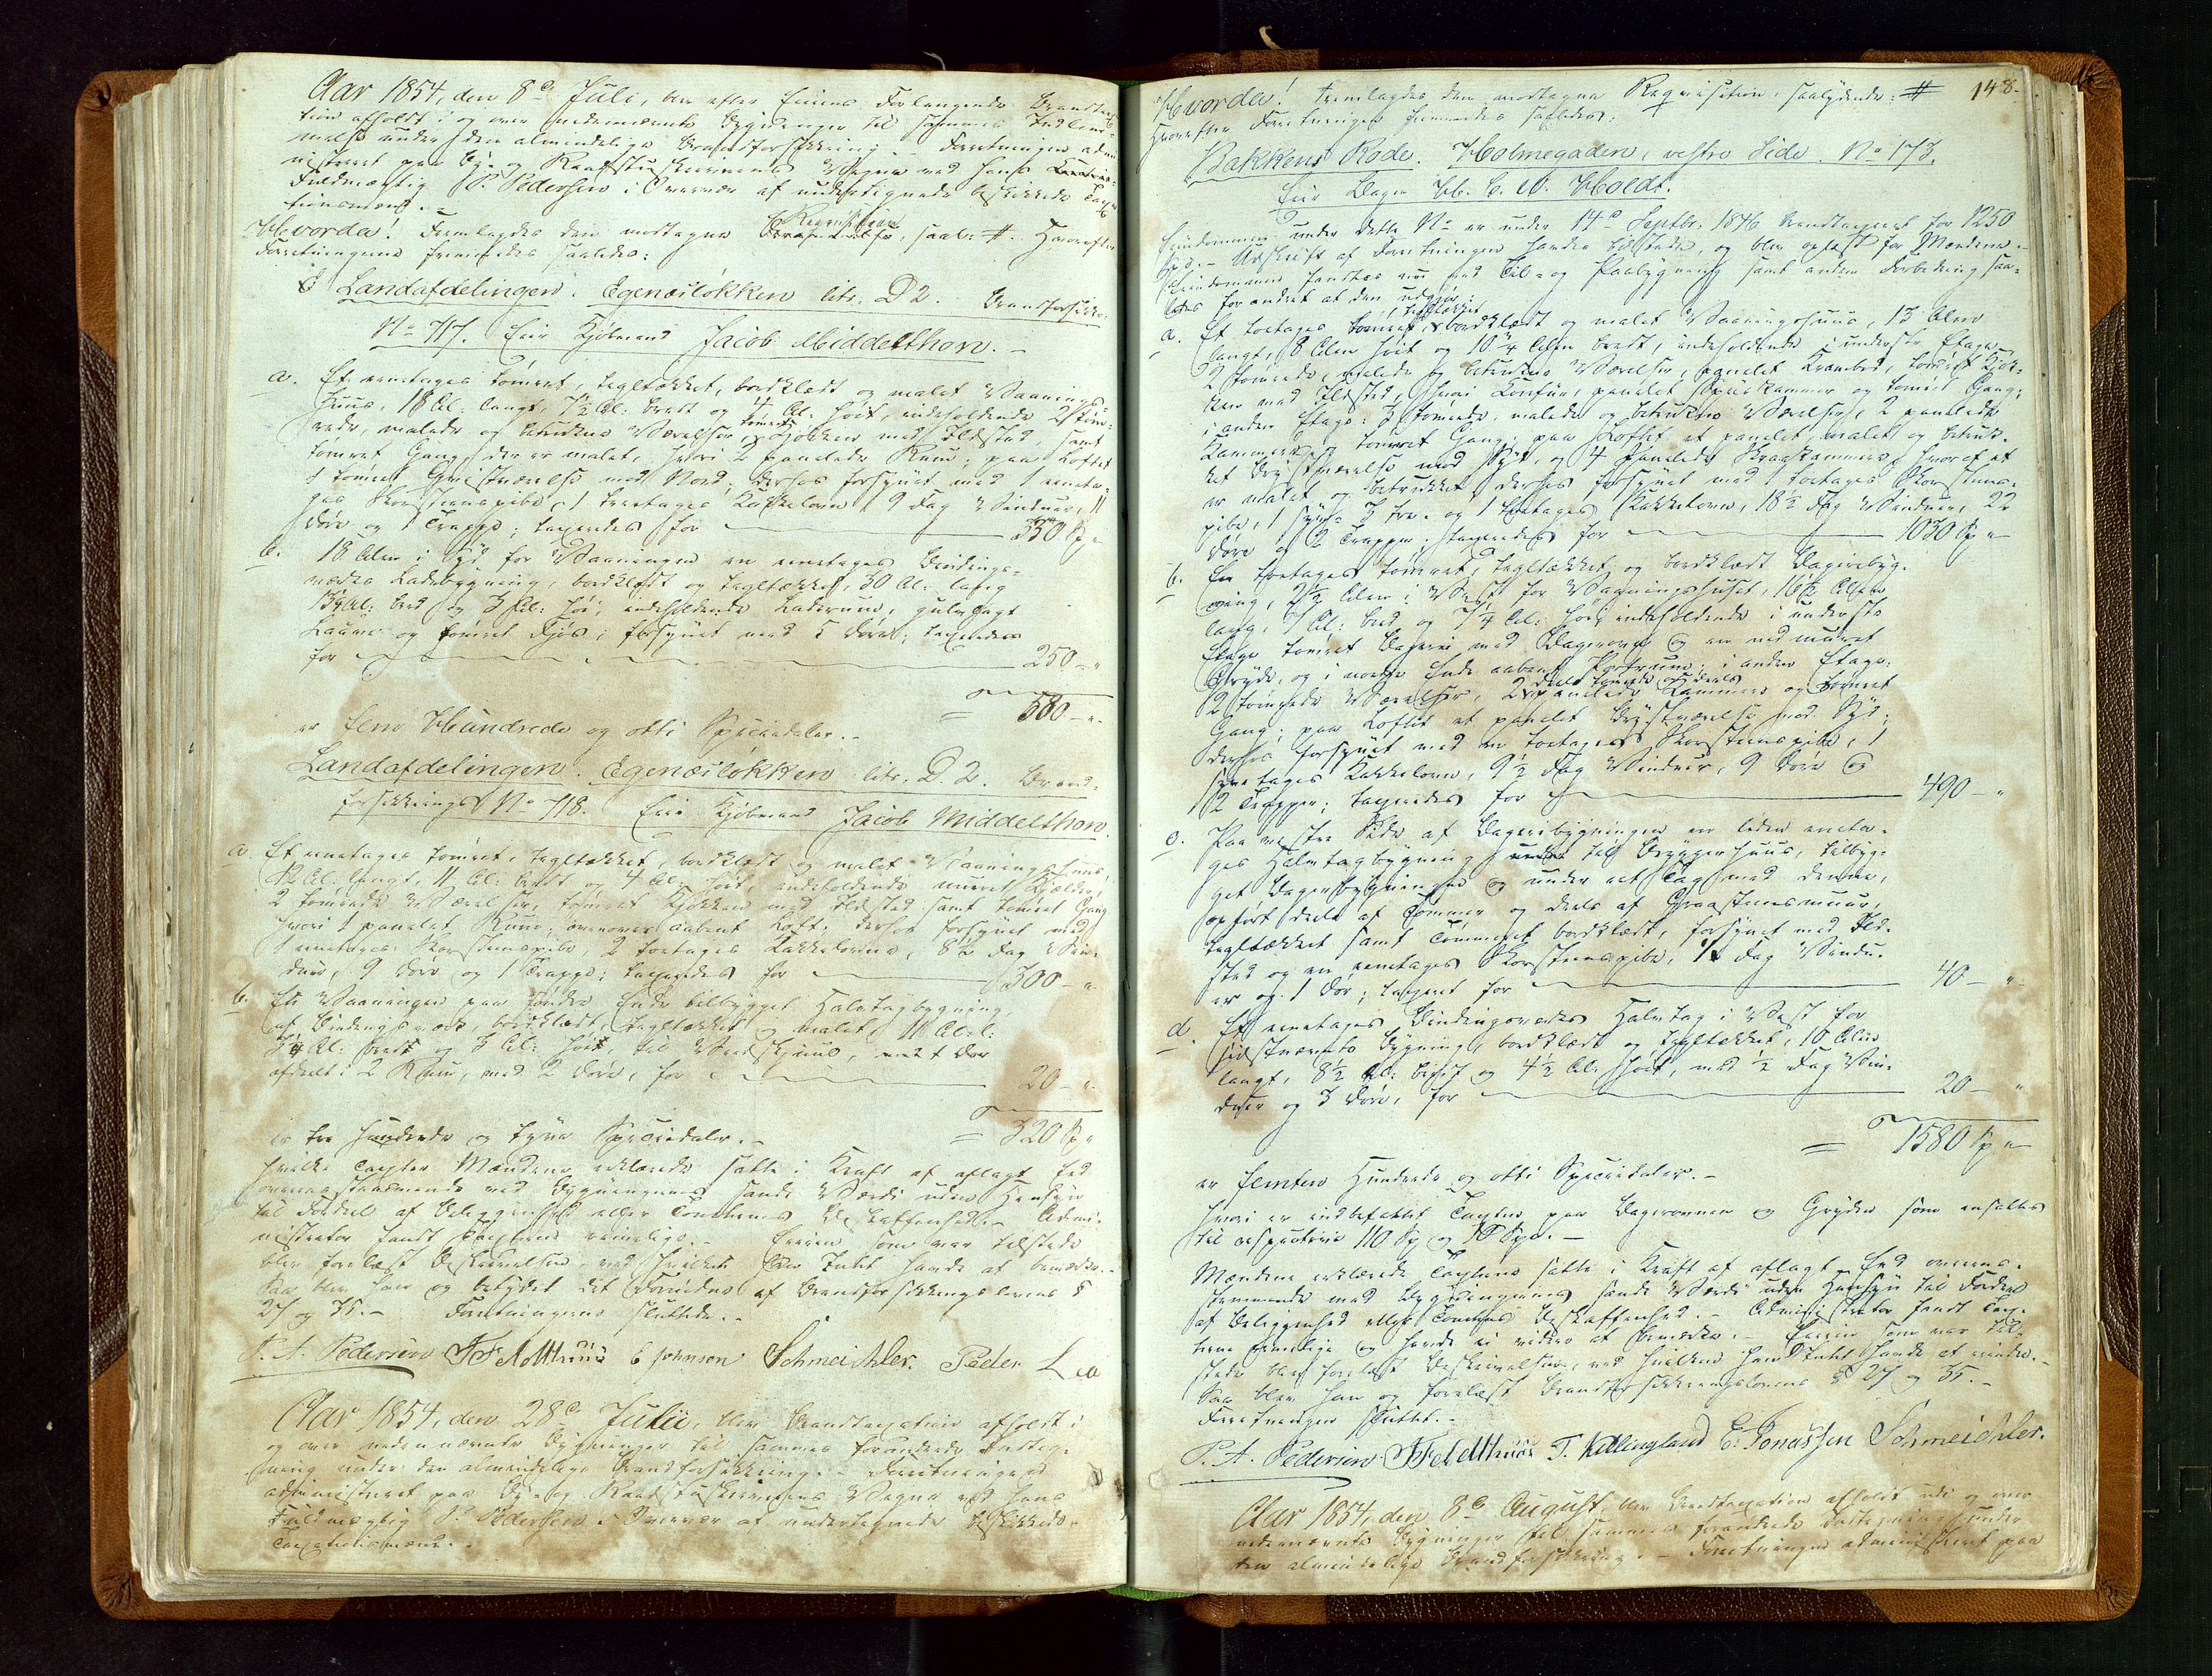 Aar 1854, den 8de Juli, blev efter Eierens Forlangende Brandtaxa-
tion afholdt i og over nedennævnte Bygninger til sammes Indlem-
melse under den almindelige Brandforsikkring. Forretningen admi-
nistreret paa By- og Raadstueskriverens Vegne ved hans
Fuldmægtig P. Pedersen i Overvær af undertegnede beskikkede Taxa-
tionsmænd. -
Hvorda! Fremlagdes den modtagne Requisition, saal: #. Hvorefter
Forretningerne fremmedes saaledes:
Landafdelingen. Egenæsløkken litr. D 2. Brandforsikr:
No 717. Eier Kjøbmand Jacob Middelthon. -
a. Et eenetages tømret, tegltækket, bordklædt og malet Vaanings-
huus, 18 Al: langt, 7½ Al: bredt og 4 Al: høit, indeholdende 2 tøm-
rede, malede og betrukne Værelser, tømret Kjøkken med Ildsted, samt
tømret Gang, der er malet, hvori 2 panelede Rum; paa Loftet
1 tømret Qvistværelse mod Nord; derhos forsynet med 1 eeneta-
ges Skorsteenspibe, 1 treetages Kakkelovn, 9 Fag Vinduer, 11
Døre og 1 Trappe; taxeredes for 330 Sp "
b. 18 Alen i Syd for Vaaningen en eenetages Bindings-
værks Ladebygning, bordklædt og tegltækket, 30 Al: lang
13¼ Al: bred og 3 Al: høi, indeholdende Laderum, gulvlagt
Laave og tømret Fjøs; forsynet med 5 Døre; taxeredes
for 250 - "
= 580 - "
er fem Hundrede og otti Speciedaler. -
Landafdelingen. Egenæsløkken litr. D. 2. Brand-
forsikkrings No 718. Eier Kjøbmand Jacob Middelthon.
a. Et eenetages tømret, tegltækket, bordklædt og malet Vaaningshuus,
12 Al: langt, 11 Al: bredt og 4 Al: høit, indeholdende muret Kjælder,
2 tømrede Værelser, tømret Kjøkken med Ildsted samt tømret Gang
hvori 1 panelet Rum; ovenover aabent Loft; derhos forsynet med
1 eenetages Skorsteenspibe, 2 toetages Kakkelovne, 8½ Fag Vin-
duer, 9 Døre og 1 Trappe; taxeredes for 300 - "
b. En Vaaningen paa søndre Ende tilbygget Halvtagbygning,
af Bindingsværk, bordklædt, tegltækket og malet, 11 Al: l:
3¼ Al: bredt og 3 Al: høit, til Vedskjuul,
afdeelt i 2 Rum, med 2 Døre, for 20 - "
= 320 Sp "
er tre Hundrede og tyve Speciedaler. -
Hvilke Taxter Mændene erklærede satte i Kraft af aflagt Eed
overensstemmende med Bygningernes sande Værdi uden Hensyn
til Fordeel af Beliggenhed eller Tomtens Beskaffenhed. - Admi-
nistrator fandt Taxterne rimelige. - Eieren som var tilstede
blev forelæst Beskrivelsen, ved hvilken han Intet havde at bemærke. -
Saa blev han og betydet det Fornødne af Brandforsikkringslovens §
27 og 35. - Forretningerne sluttede. -
P. A. Pedersen FFeldtHuus C Johnsen Schmeichler. Peder Lea
Aar 1854, den 28de Julii, blev Brandtaxation afholdt i
og over nedennævnte Bygninger til sammes forandrede Indteg-
ning under den almindelige Brandforsikkring. - Forretningen
administreret paa By- og Raadstueskriverens Vegne ved hans
Fuldmægtig P. Pedersen i Overvær af undertegnede beskikkede
Taxationsmænd. -
148.
Hvorda! Fremlagdes den modtagne Requisition, saalydende: #
Hvorefter Forretningen fremmedes saaledes:
Bakkens Rode. Holmegaden, vestre Side. No 173.
Eier Bager H. C. W. Holdt.
Eiendommen under dette No er under 14de Septbr: 1846 brandtaxeret for 1250
Spd. - Udskrift af Forretningen havdes tilstede, og blev oplæst for Mændene. -
Eiendommen fandtes nu ved Til- og Paabygning samt anden Forbedring saa-
ledes forandret at den udgjør:
a. Et toetages tømret, tegltækket, bordklædt og malet Vaaningshuus, 13 Alen
langt, 8 Alen høit og 10¼ Alen bredt, indeholdende i underste Etage
2 tømrede, malede og betrukne Værelser, panelet Krambod, tømret Kjøk-
ken med Ildsted, hvori Komfur, panelet Spiiskammer og tømret Gang;
i anden Etage: 3 tømrede, malede og betrukne Værelser, 2 panelede
Kammere og tømret Gang; paa Loftet et panelet, malet og betruk-
ket Qvistværelse mod Syd, og 4 panelede Skraakammere, hvoraf et
er malet og betrukket; derhos forsynet med 1 toetages Skorsteens-
pibe, 1 fyr- 3 tre- og 1 toetages Kakkelovn, 18½ Fag Vinduer, 22
Døre og 2 Trapper; taxeredes for 1030 Sp "
b. En toetages tømret, tegltækket og bordklædt Bageribyg-
ning, 2½ Alen i Vest for Vaaningshuset, 16½ Alen
lang, 7 Al: bred og 7¼ Al: høi, indeholdende i underste
Etage tømret Bageri med Bagerovn og en indmuret
Gryde, og i nordre Ende aabent Portrum; i anden Etage:
2 tømrede Værelser, 2 deels tømrede og deels panelede Kammere og tømret
Gang; paa Loftet et panelet Qvistværelse mod Syd;
derhos forsynet med en toetages Skorsteenspibe, 1
treetages Kakkelovn, 9½ Fag Vinduer, 9 Døre og
2 Trapper; taxeredes for 490 - "
c. Paa vestre Side af Bageribygningen en liden eeneta-
ges Halvtagbygning til Bryggerhuus, tilbyg-
get Bageribygningen og under eet Tag med denne,
opført deels af Tømmer og deels af Graasteensmuur,
tegltækket samt Tømmeret bordklædt, forsynet med Ild-
sted og en eenetages Skorsteenspibe, 1 Fag Vindu-
er og 1 Dør; taxeret for 40 - "
d. Et eenetages Bindingsværks Halvtag i Vest for
sidstnævnte Bygning, bordklædt og tegltækket, 10 Alen
langt, 8½ Al: bredt og 4½ Al: høit, med ½ Fag Vin-
duer og 3 Døre, for 20 - "
= 1580 Sp "
er femten Hundrede og otti Speciedaler. -
Hvori er indbefattet Taxten paa Bagerovnen og Gryden som ansattes
til respective 110 Sp og 10 Spd. -
Mændene erklærede Taxterne satte i Kraft af aflagt Eed overens-
stemmende med Bygningernes sande Værdi uden Hensyn til Fordeel
af Beliggenhed eller Tomtens Beskaffenhed. - Administrator fandt Tax-
terne rimelige og havde ei videre at bemærke. - Eieren som var til-
stede blev forelæst Beskrivelsen, ved hvilken han Intet havde at erindre. -
Saa blev han og forelæst Brandforsikkringslovens § 27 og 35. -
Forretningen sluttet. -
P. A. Pedersen FFeldtHuus T. Kellingland C. Jonassen Schmeichler.
Aar 1854, den 8de August, blev Brandtaxation afholdt udi og over
nedennævnte Bygninger til sammes forandrede Indtegning under
den almindelige Brandforsikkring. - Forretningen administreret paa